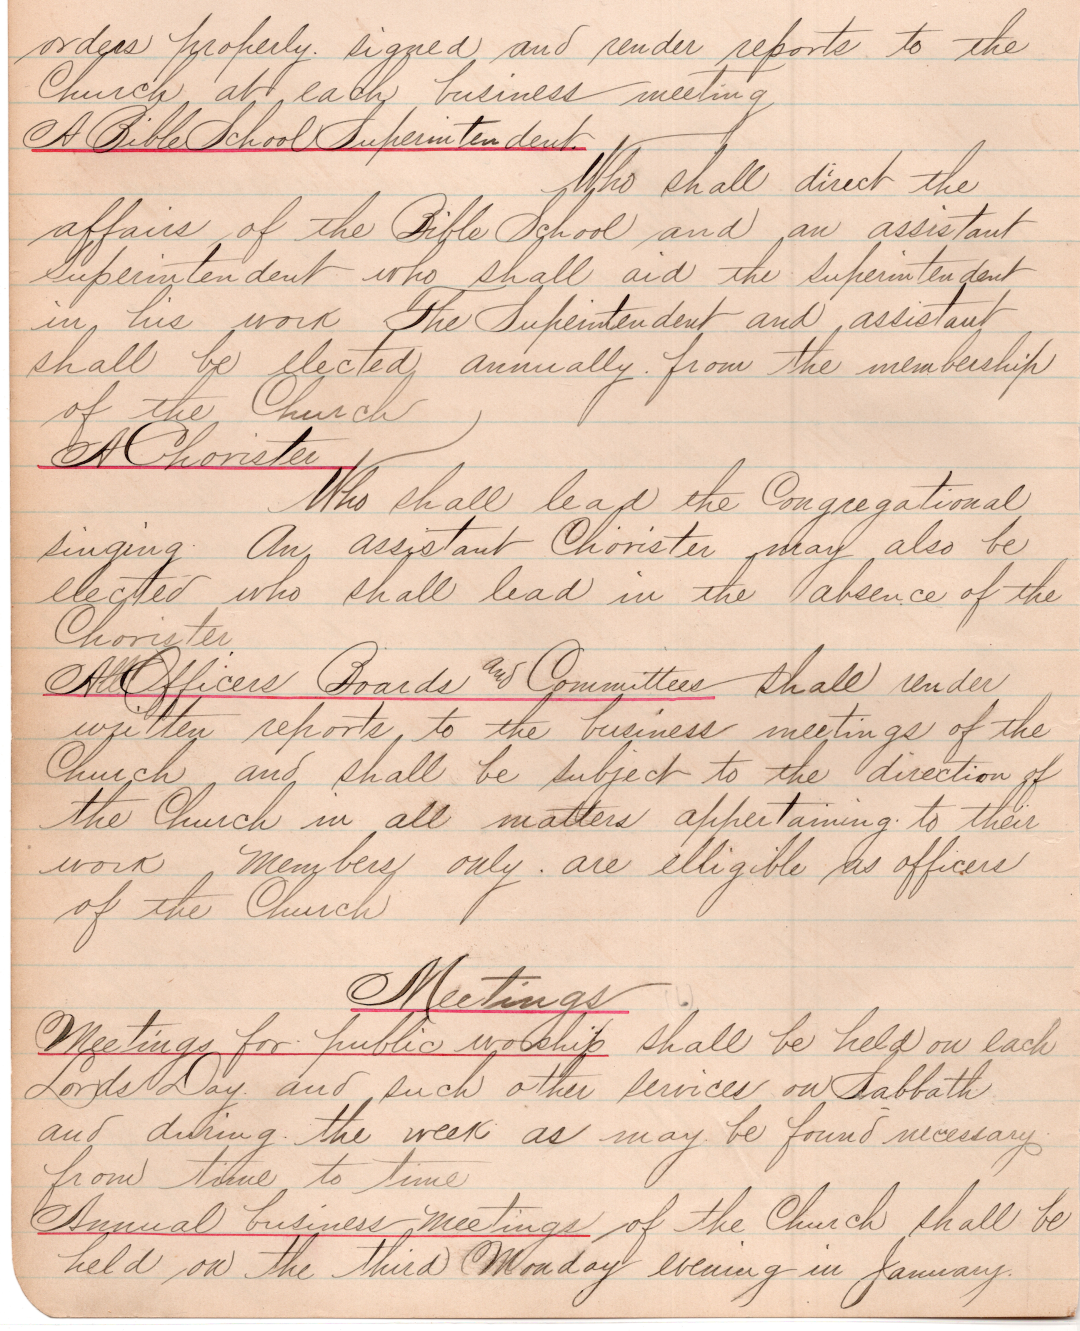 orders properly. signed and render reports to the
Church at each business meeting
A Bible School Superintendent.
Who shall direct the
affairs of the Bible School and an assistant
superintendent who shall aid the superintendent
in his work The Superintendent and assistant
shall be elected annually. from the membership
of the Church
A Chorister
Who shall lead the Congregational
singing. An assistant Chorister may also be
elected who shall lead in the absence of the
Chorister
All Officers Boards and Committees shall render
written reports to the business meetings of the
Church and shall be subject to the direction of
the Church in all matters appertaining to their
work Members only. are elligible as officers
of the Church
Meetings
Meetings for public worship shall be held on each
Lords Day. and such other services on Sabbath
and during. the week as may be found necessary
from time to time
Annual business meetings of the Church shall be
held on the third Monday evening in January.